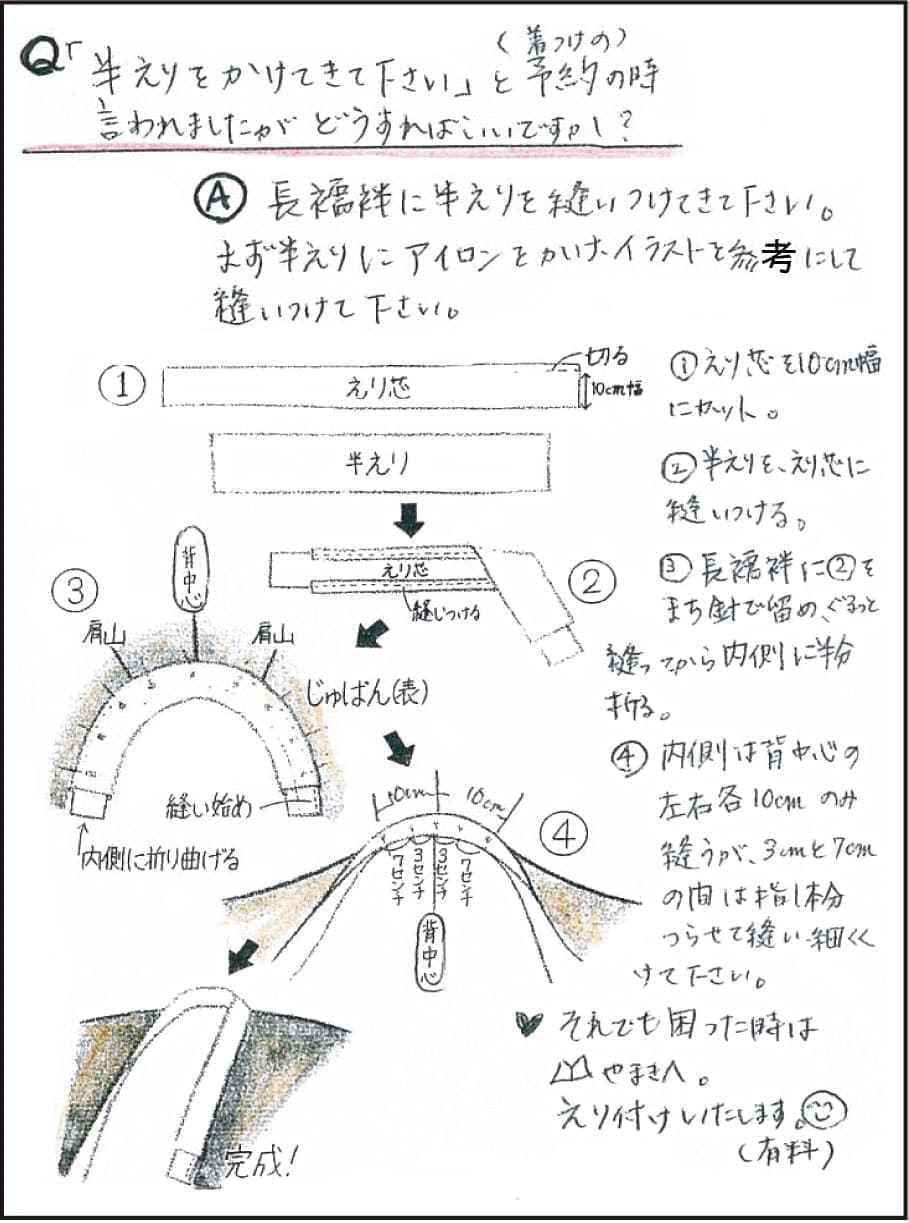 Q「半えりをかけてきて下さい」と(着つけの)予約の時
言われましたが どうすればいいですか?
Ⓐ 長襦袢に半えりを縫いつけてきて下さい。
まず半えりにアイロンをかけ、イラストを参考にして
縫いつけて下さい。
①
えり芯
切る
10cm幅
半えり
①えり芯を10cm幅
にカット。
②半えりを、えり芯に
縫いつける。
②
えり芯
縫いつける
③長襦袢に②を
まち針で留め、ぐるっと
縫ってから内側に半分
折る。
③
背中心
肩山
肩山
じゅばん(表)
縫い始め
内側に折り曲げる
④内側は背中心の
左右各10cmのみ
縫うが、3cmと7cm
の間は指1本分
つらせて縫い細くく
けて下さい。
④
10cm
10cm
7センチ
3センチ
3センチ
7センチ
背中心
完成!
♥それでも困った時は
やまきへ。
えり付けいたします。
(有料)